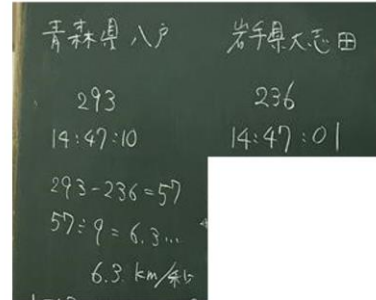 青森県八戸 岩手県大志田
293 236
14:47:10 14:47:01
293-236=57
57÷9=6.3...
6.3 km/秒